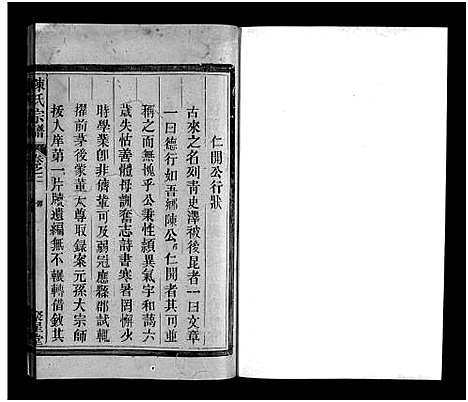 仁開公行狀
古來之名列青史澤被後昆者一曰文章
一曰德行如吾鄉陳公仁開者其可並
稱之而無愧乎公秉性頴異氣宇和藹六
歲失怙善體母訓奮志詩書寒暑罔懈少
時學業卽非儕輩可及弱冠應縣郡試輒
擢前茅後蒙董太尊取錄案元孫大宗師
拔入庠第一片牘遺編無不輾轉借鈔其
陳氏宗譜
卷之二
聚星堂